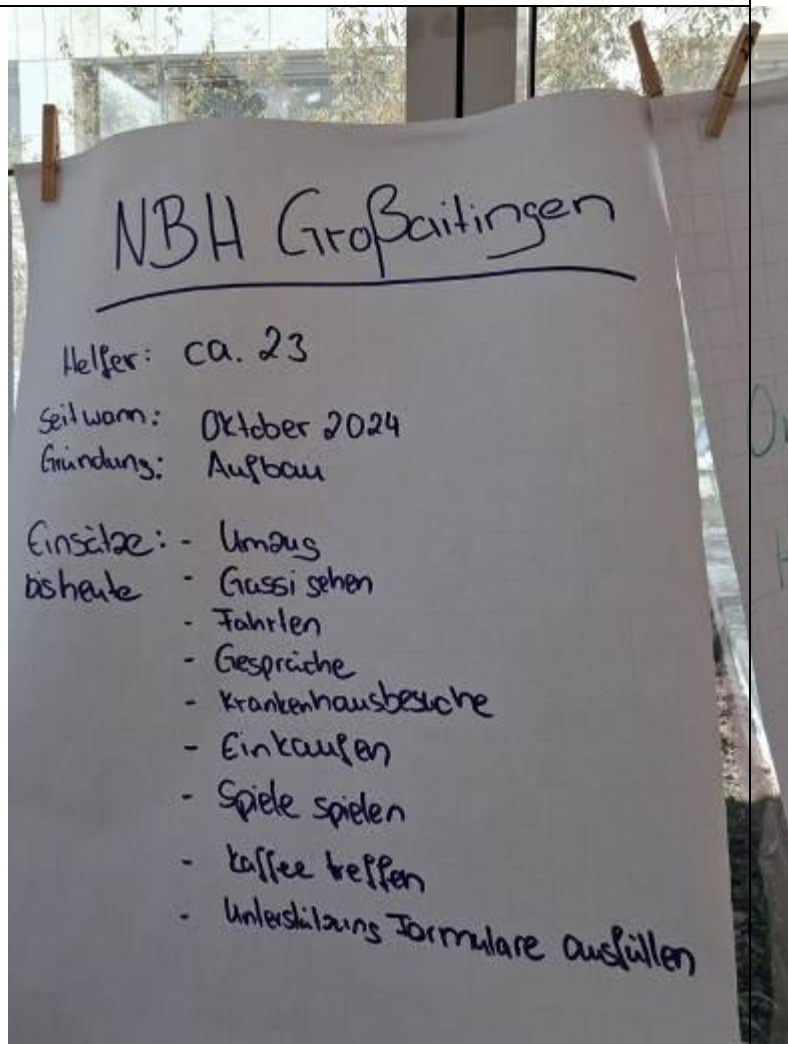 NBH Großaitingen
Helfer: ca. 23
Seit wann: Oktober 2024
Gründung: Aufbau
Einsätze: - Umzug
bis heute - Gassi gehen
- Fahrten
- Gespräche
- Krankenhausbesuche
- Einkaufen
- Spiele spielen
- Kaffee treffen
- Unterstützung Formulare ausfüllen